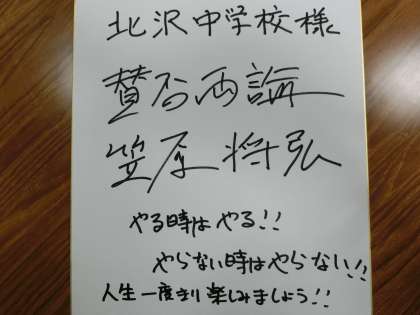 北沢中学校様
賛否両論
笠原将弘
やる時はやる!!
やらない時はやらない!!
人生一度きり楽しみましょう!!